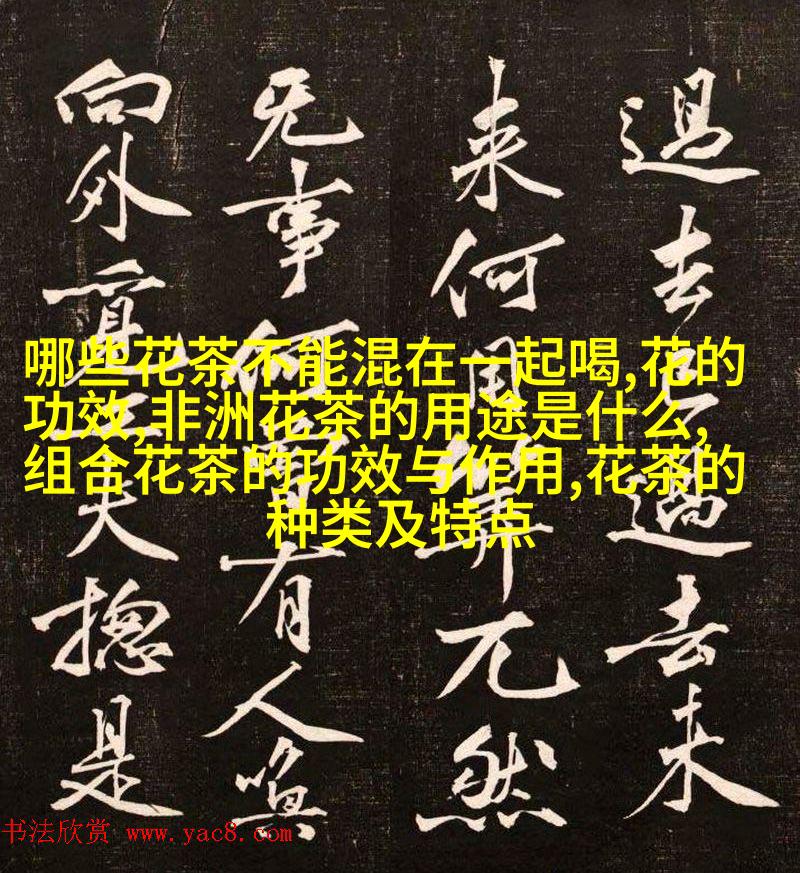 過去已過去未
来何用筭兀然
无事何曾有人喚
向外覓工夫揔是
哪些花茶不能混在一起喝,花的
功效,非洲花茶的用途是什么,
组合花茶的功效与作用,花茶的
种类及特点
书法欣赏 www.yac8.com